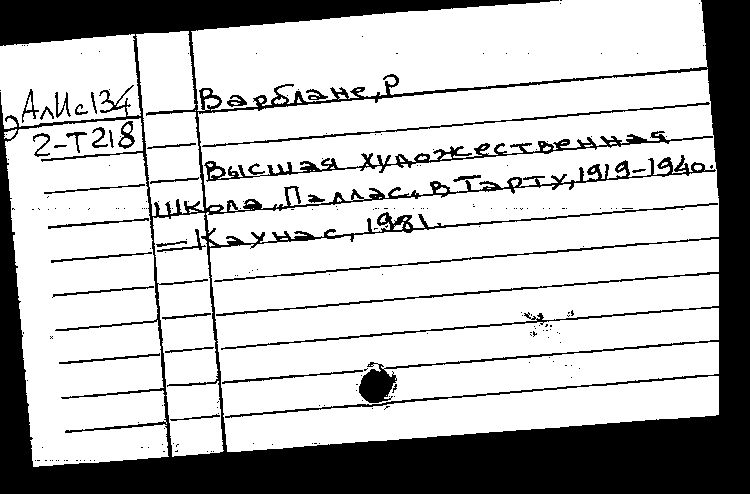 АлИс134
Э 2-Т218
Варблане, Р
Высшая художественная
школа „Паллас„ в Тарту, 1919-1940.
— Каунас, 1981.